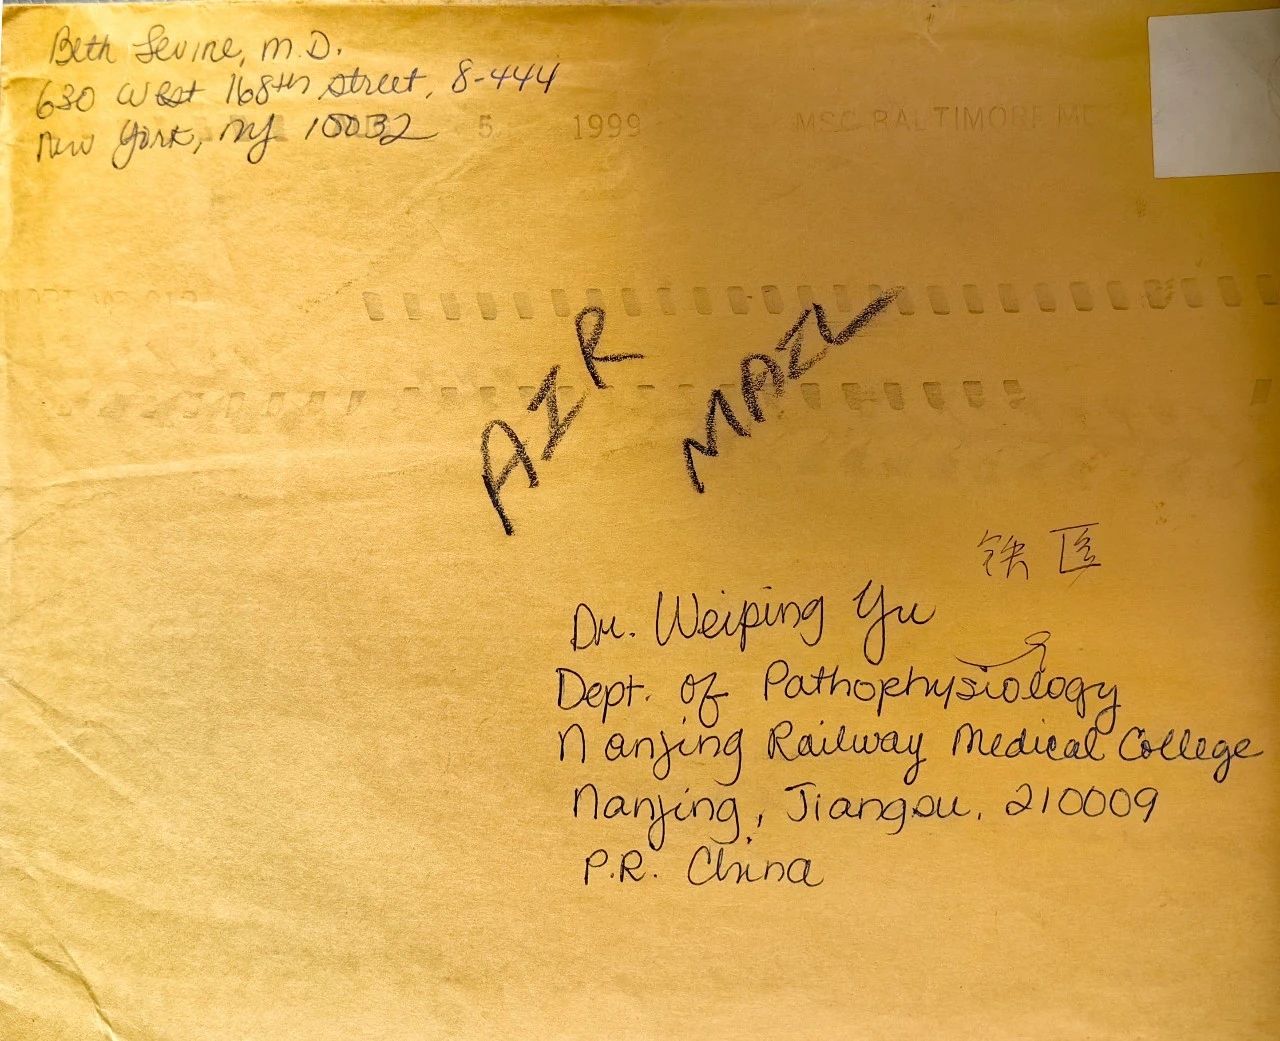 Beth Levine, M.D.
630 West 168th Street, 8-444
New York, NY 10032
5 1999 MSC BALTIMORE
AIR MAIL
铁医
Dr. Weiping Yu
Dept. of Pathophysiology
Nanjing Railway Medical College
Nanjing, Jiangsu, 210009
P.R. China